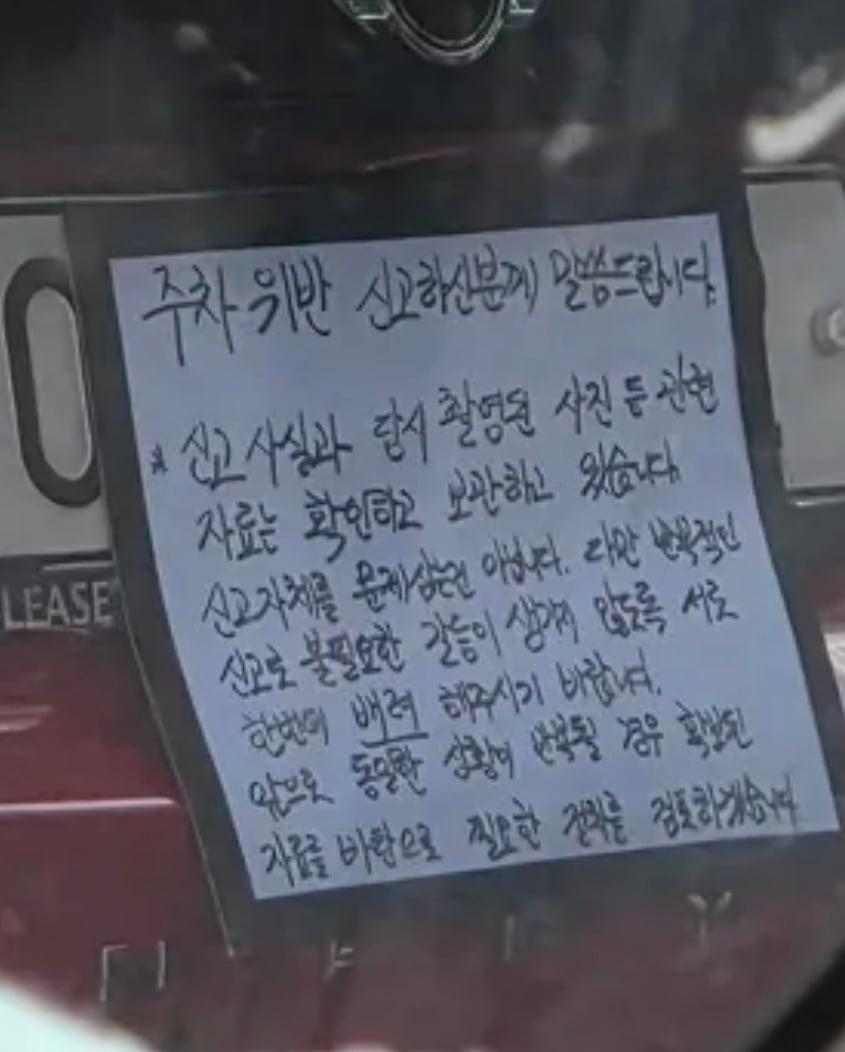 주차위반 신고하신분께 말씀드립니다.
* 신고 사실과 당시 촬영된 사진 등 관련
자료는 확인하고 보관하고 있습니다.
신고자체를 문제삼는건 아닙니다. 다만 반복적인
신고로 불필요한 갈등이 생기지 않도록 서로
한번더 배려 해주시기 바랍니다.
앞으로 동일한 상황이 반복될 경우 확보된
자료를 바탕으로 필요한 절차를 검토하겠습니다
0
LEASE